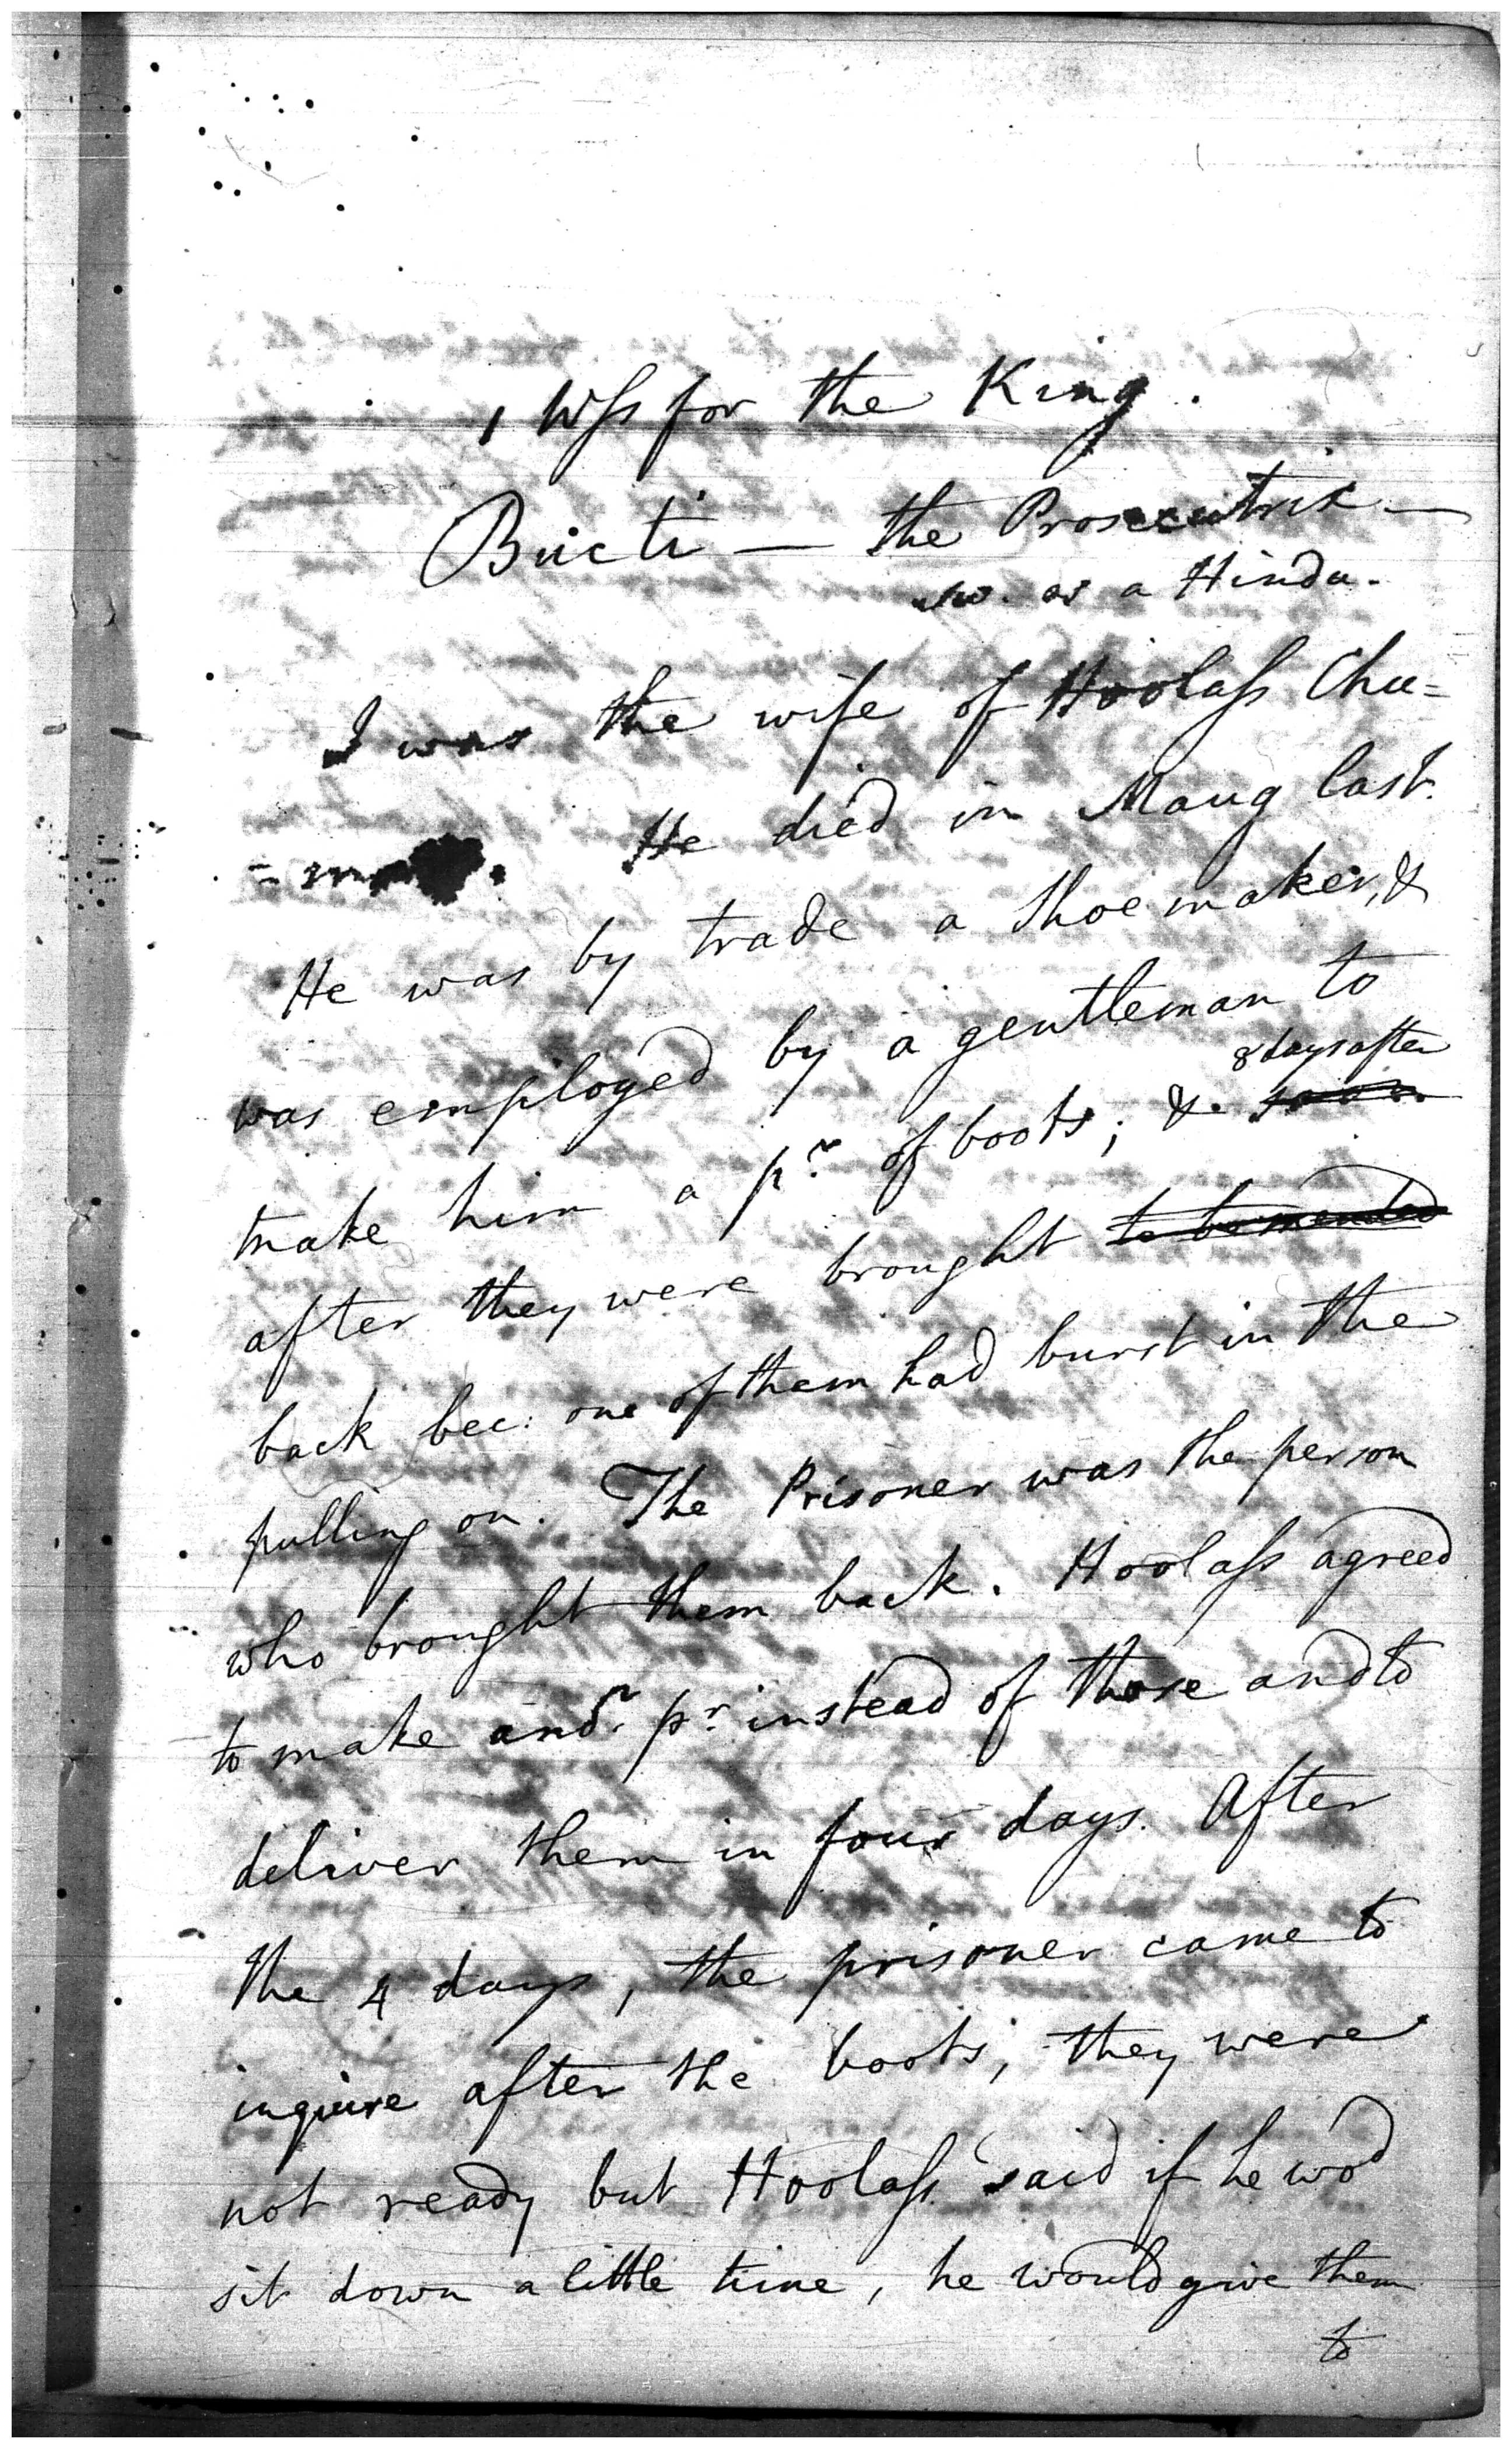 1 Wss for the King.
Bucti — the Prosecutrix —
sw. as a Hindu.
I was the wife of Hoolass Chu=
=mar. He died in Maug last.
He was by trade a Shoemaker, &
was employed by a gentleman to
make him a pr. of boots; & 8 days after
after they were brought to be mended
back bec: one of them had burst in the
pulling on. The Prisoner was the person
who brought them back. Hoolass agreed
to make anor. pr. instead of those and to
deliver them in four days. After
the 4 days, the prisoner came to
inquire after the boots, they were
not ready but Hoolass said if he wod
sit down a little time, he would give them
to